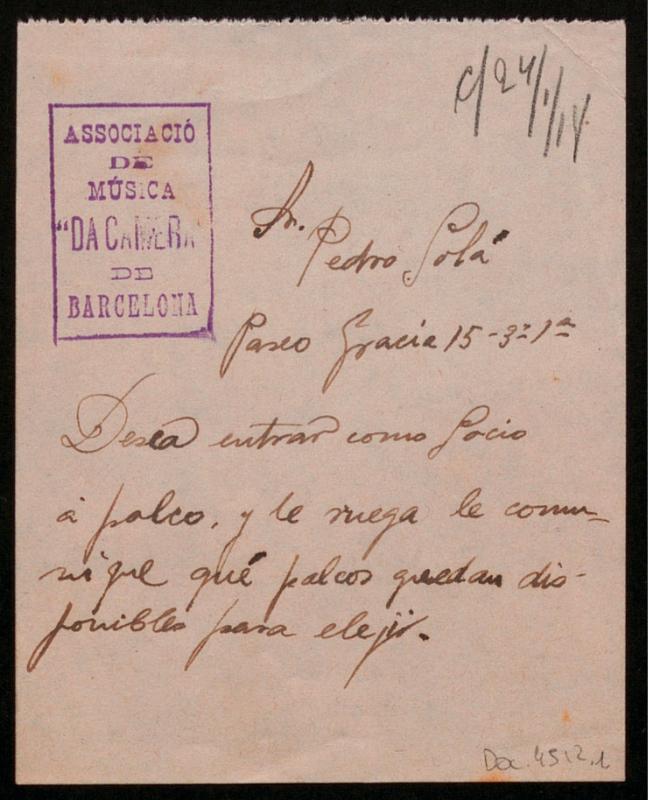 C/24/1/18
ASSOCIACIÓ
DE
MÚSICA
"DA CAMERA
DE
BARCELONA
Sr.
Pedro Solá
Paseo Gracia 15-3º 1ª
Desea entrar como Socio
á palco, y le ruega le comu-
nique qué palcos quedan dis-
ponibles para elejir.
Doc. 4512.1